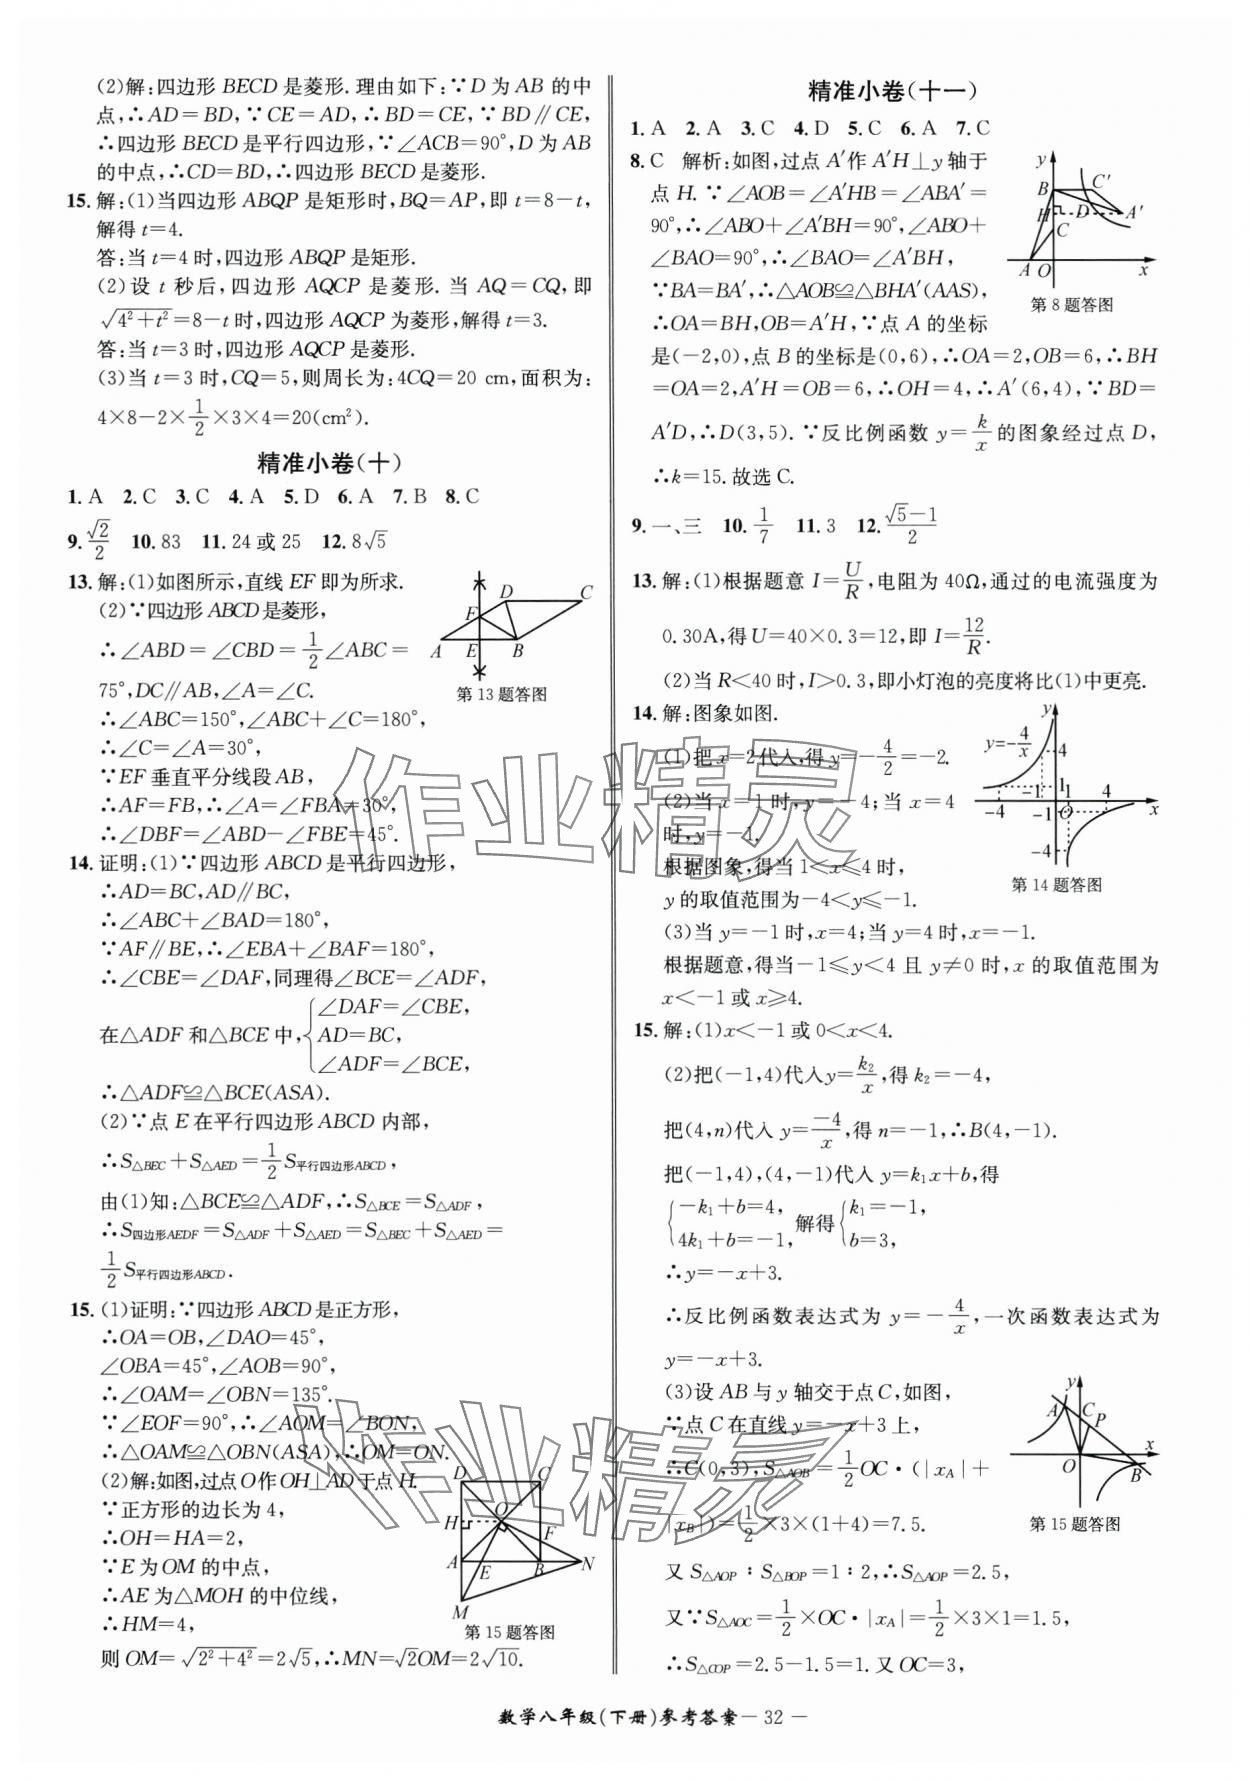 (2)解:四边形 BECD 是菱形. 理由如下:∵D 为 AB 的中
点,∴AD=BD,∵CE=AD,∴BD=CE,∵BD∥CE,
∴四边形 BECD 是平行四边形,∵∠ACB=90°,D 为 AB
的中点,∴CD=BD,∴四边形 BECD 是菱形.
15. 解:(1)当四边形 ABQP 是矩形时,BQ=AP,即 t=8-t,
解得 t=4.
答:当 t=4 时,四边形 ABQP 是矩形.
(2)设 t 秒后,四边形 AQCP 是菱形. 当 AQ=CQ,即
√(4²+t²)=8-t时,四边形 AQCP 为菱形,解得 t=3.
答:当 t=3 时,四边形 AQCP 是菱形.
(3)当 t=3 时,CQ=5,则周长为:4CQ=20 cm,面积为:
4×8-2×1/2×3×4=20(cm²).
精准小卷(十)
1. A 2. C 3. C 4. A 5. D 6. A 7. B 8. C
9. √2/2 10. 83 11. 24 或 25 12. 8√5
13. 解:(1)如图所示,直线 EF 即为所求.
(2)∵四边形 ABCD 是菱形,
∴∠ABD=∠CBD=1/2∠ABC=
75°,DC∥AB,∠A=∠C.
∴∠ABC=150°,∠ABC+∠C=180°,
∴∠C=∠A=30°,
∵EF 垂直平分线段 AB,
∴AF=FB,∴∠A=∠FBA=30°,
∴∠DBF=∠ABD-∠FBE=45°.
D C
F
A E B
第 13 题答图
14. 证明:(1)∵四边形 ABCD 是平行四边形,
∴AD=BC,AD∥BC,
∴∠ABC+∠BAD=180°,
∵AF∥BE,∴∠EBA+∠BAF=180°,
∴∠CBE=∠DAF,同理得∠BCE=∠ADF,
在△ADF 和△BCE 中,{∠DAF=∠CBE,
AD=BC,
∠ADF=∠BCE,
∴△ADF≌△BCE(ASA).
(2)∵点 E 在平行四边形 ABCD 内部,
∴S△BEC+S△AED=1/2S平行四边形ABCD,
由(1)知:△BCE≌△ADF,∴S△BCE=S△ADF,
∴S四边形AEDF=S△ADF+S△AED=S△BEC+S△AED=
1/2S平行四边形ABCD.
15. (1)证明:∵四边形 ABCD 是正方形,
∴OA=OB,∠DAO=45°,
∠OBA=45°,∠AOB=90°,
∴∠OAM=∠OBN=135°.
∵∠EOF=90°,∴∠AOM=∠BON,
∴△OAM≌△OBN(ASA),∴OM=ON.
(2)解:如图,过点 O 作 OH⊥AD 于点 H.
∵正方形的边长为 4,
∴OH=HA=2,
∵E 为 OM 的中点,
∴AE 为△MOH 的中位线,
∴HM=4,
则 OM=√(2²+4²)=2√5,∴MN=√2OM=2√10.
D C
O
H F
A E B N
M
第 15 题答图
精准小卷(十一)
1. A 2. A 3. C 4. D 5. C 6. A 7. C
8. C 解析:如图,过点 A′作 A′H⊥y 轴于
点 H. ∵∠AOB=∠A′HB=∠ABA′=
90°,∴∠ABO+∠A′BH=90°,∠ABO+
∠BAO=90°,∴∠BAO=∠A′BH,
∵BA=BA′,∴△AOB≌△BHA′(AAS),
∴OA=BH,OB=A′H,∵点 A 的坐标
是(-2,0),点 B 的坐标是(0,6),∴OA=2,OB=6,∴BH
=OA=2,A′H=OB=6,∴OH=4,∴A′(6,4),∵BD=
A′D,∴D(3,5). ∵反比例函数 y=k/x 的图象经过点 D,
∴k=15. 故选 C.
y
B C′
H D A′
C
A O x
第 8 题答图
9. 一、三 10. 1/7 11. 3 12. (√5-1)/2
13. 解:(1)根据题意 I=U/R,电阻为 40Ω,通过的电流强度为
0.30A,得 U=40×0.3=12,即 I=12/R.
(2)当 R<40 时,I>0.3,即小灯泡的亮度将比(1)中更亮.
14. 解:图象如图.
(1)把 x=2代入,得 y=-4/2=-2.
(2)当 x=1 时,y=-4;当 x=4
时,y=-1.
根据图象,得当 1<x≤4 时,
y 的取值范围为-4<y≤-1.
(3)当 y=-1 时,x=4;当 y=4 时,x=-1.
根据题意,得当-1≤y<4 且 y≠0 时,x 的取值范围为
x<-1 或 x≥4.
y
y=-4/x 4
1
-4 -1 1 4
-1 O x
-4
第 14 题答图
15. 解:(1)x<-1 或 0<x<4.
(2)把(-1,4)代入y=k₂/x,得 k₂=-4,
把(4,n)代入 y=-4/x,得 n=-1,∴B(4,-1).
把(-1,4),(4,-1)代入 y=k₁x+b,得
{-k₁+b=4, 4k₁+b=-1, 解得{k₁=-1, b=3,
∴y=-x+3.
∴反比例函数表达式为 y=-4/x,一次函数表达式为
y=-x+3.
(3)设 AB 与 y 轴交于点 C,如图,
∵点 C 在直线 y=-x+3 上,
∴C(0,3),S△AOB=1/2OC·(|xA|+
|xB|)=1/2×3×(1+4)=7.5.
又 S△AOP∶S△BOP=1∶2,∴S△AOP=2.5,
又∵S△AOC=1/2×OC·|xA|=1/2×3×1=1.5,
∴S△COP=2.5-1.5=1. 又 OC=3,
y
A C P
x
O B
第 15 题答图
数学八年级(下册)参考答案— 32 —
作业精灵
作业精灵